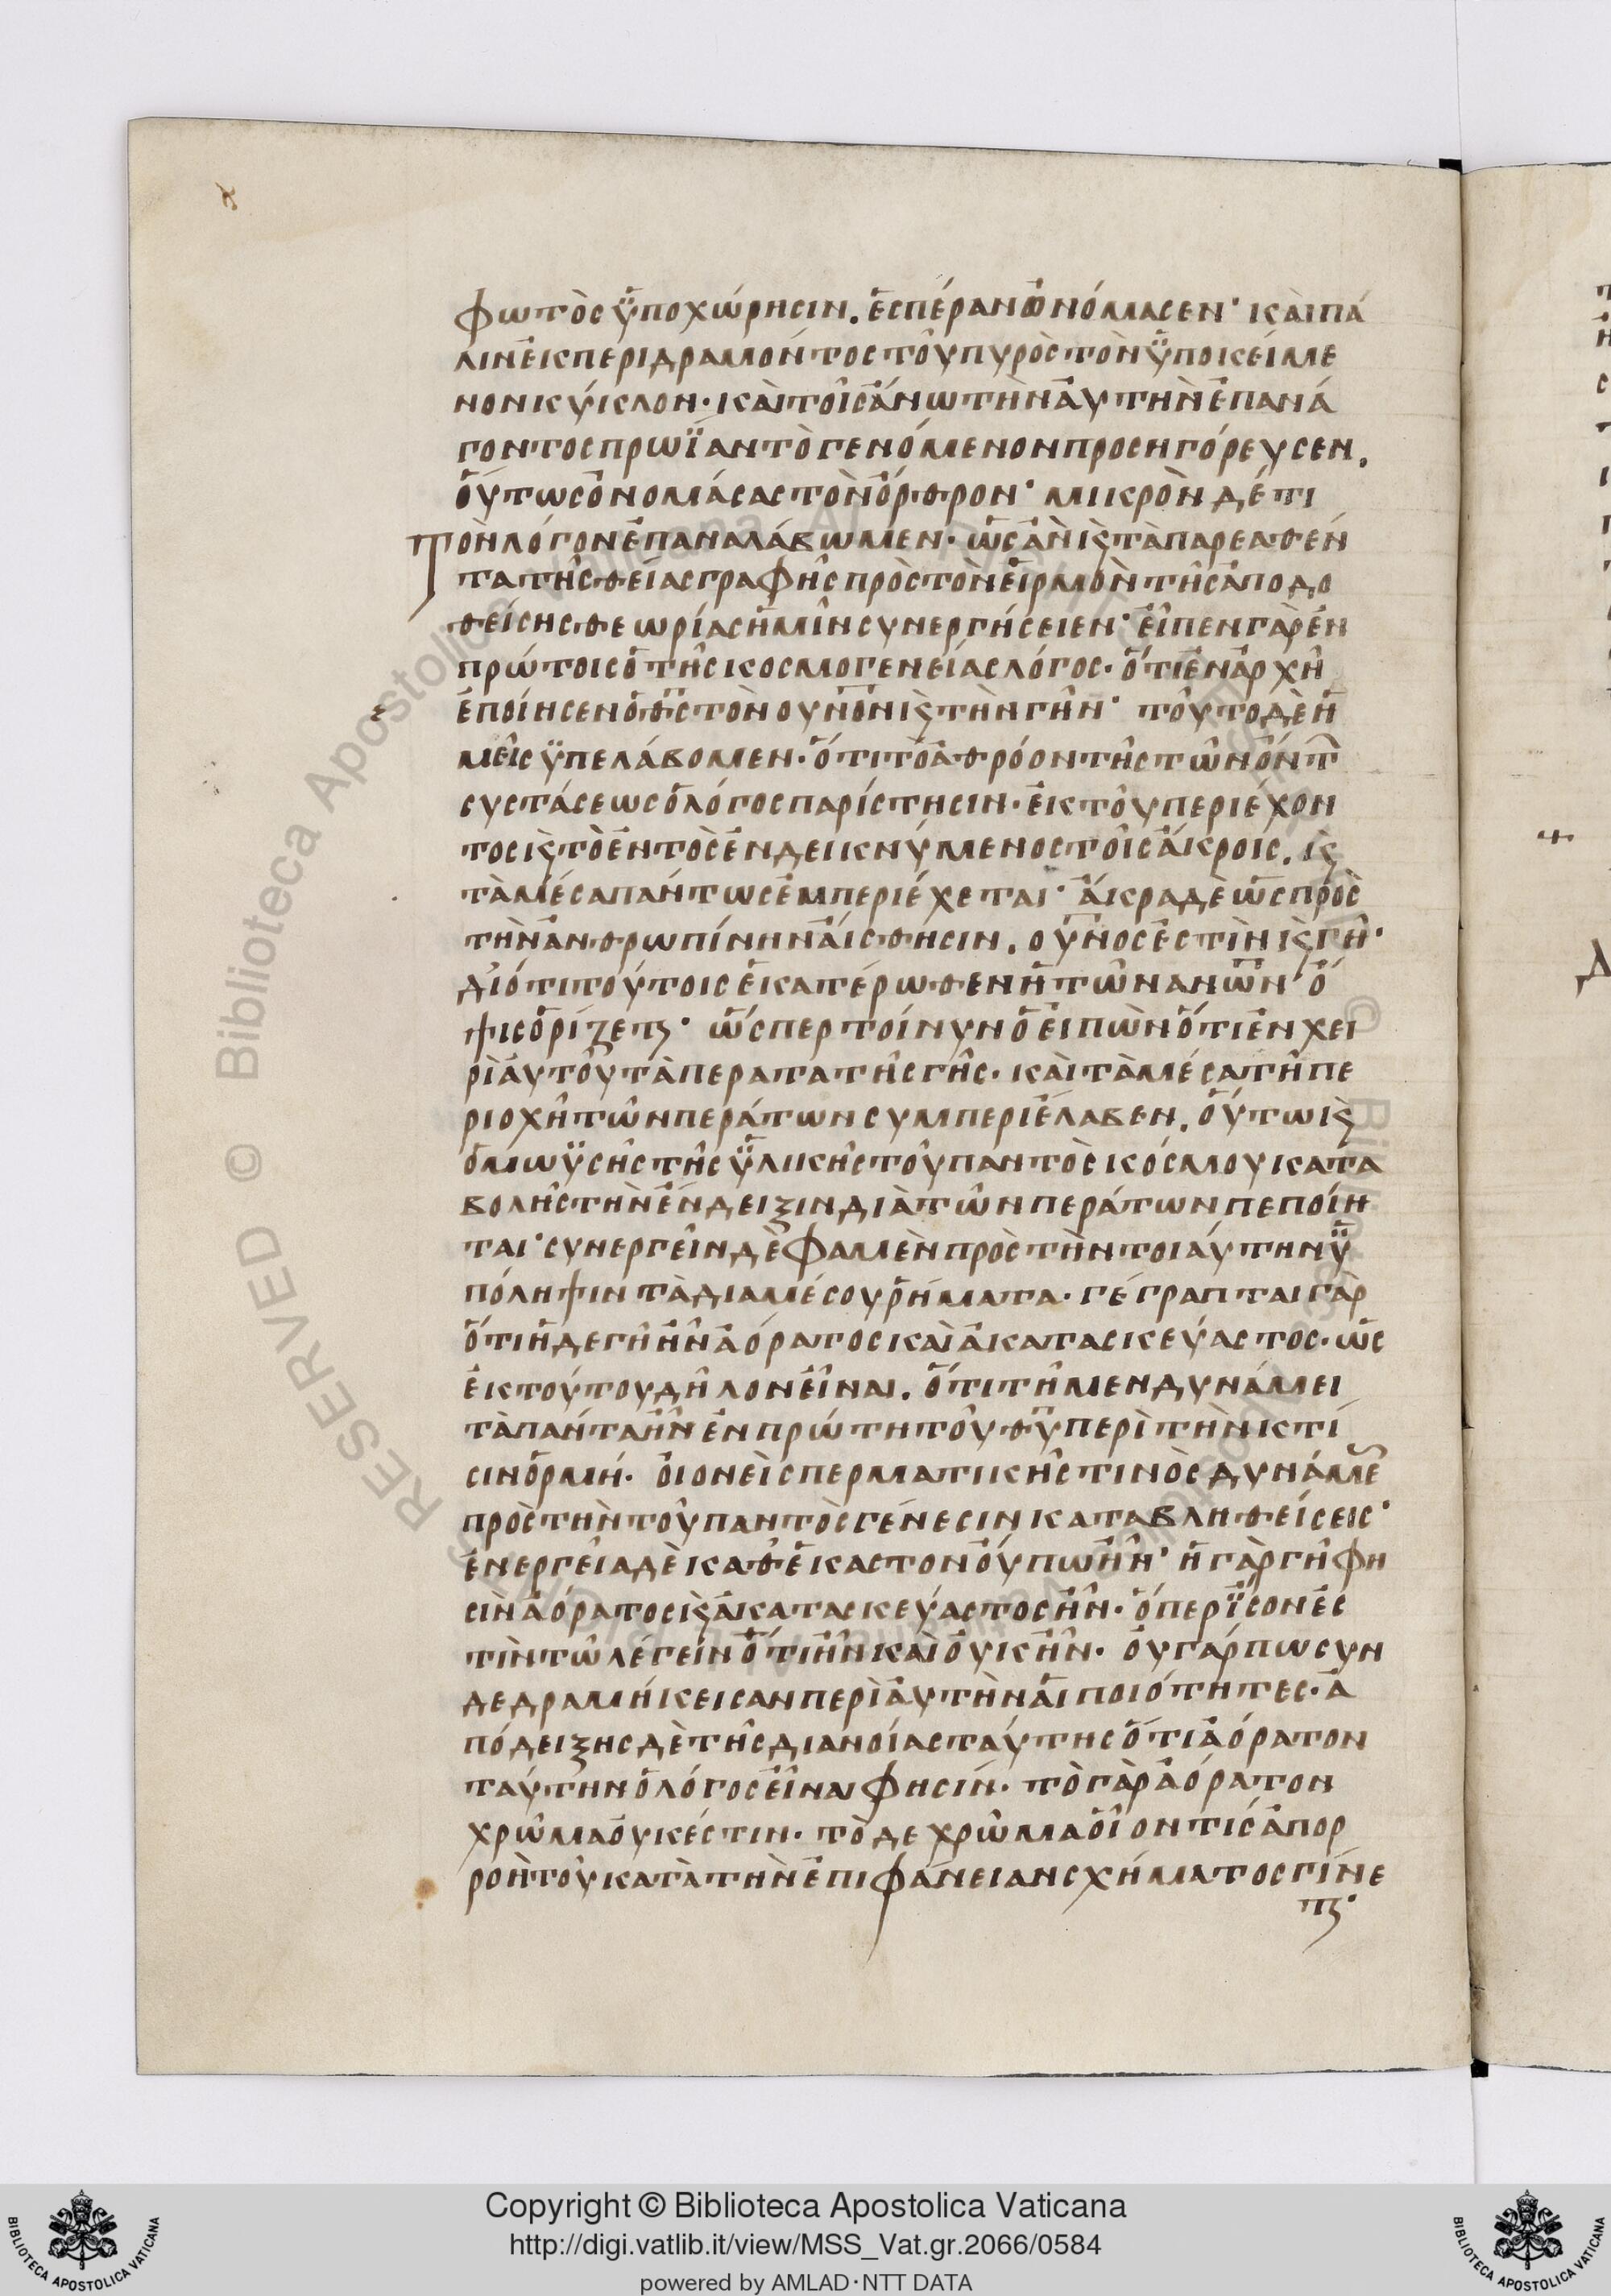 φωτὸς ὑποχώρησιν. ἑσπέραν ὠνόμασεν· καὶ πά
λιν ἐκπεριδραμόντος τοῦ πυρὸς τὸν ὑποκείμε
νον κύκλον· καὶ τοῖς ἄνω τὴν αὐτὴν ἐπανά
γοντος πρωΐαν τὸ γενόμενον προσηγόρευσεν.
οὕτως ὀνομάσας τὸν ὄρθρον· μικρὸν δέ τι
τὸν λόγον ἐπαναλάβωμεν· ὡς ἂν κ(αὶ) τὰ παρεαθέν
τα τῆς θείας γραφῆς πρὸς τὸν εἱρμὸν τῆς ἀποδο
θείσης θεωρίας ἡμῖν συνεργήσειεν· εἶπεν γὰρ ἐν
πρώτοις ὁ τῆς κοσμογενείας λόγος· ὅτι ἐν ἀρχῆ
ἐποίησεν ὁ θς τὸν ουνὸν κ(αὶ) τὴν γῆν· τοῦτο δὲ ἡ
μεῖς ὑπελάβομεν· ὅτι τὸ ἀθρόον τῆς τῶν ὄντ
συστάσεως ὁ λόγος παρίστησιν· ἐκ τοῦ περιέχον
τος κ(αὶ) τὸ ἐντὸς ἐνδεικνύμενος τοῖς ἄκροις. κ(αὶ)
τὰ μέσα πάντως ἐμπεριέχεται· ἄκρα δὲ ὡς πρὸς
τὴν ἀνθρωπίνην αἴσθησιν. ουνος ἐστὶν κ(αὶ) γῆ·
διότι τούτοις ἑκατέρωθεν ἡ τῶν ανων ὄ
ψις ὁρίζεται· ὥσπερ τοίνυν ὁ εἰπὼν ὅτι ἐν χει
ρὶ αὐτοῦ τὰ περατα τῆς γῆς· καὶ τὰ μέσα τῆ πε
ριοχῆ τῶν περάτων συμπεριέλαβεν. οὕτω κ(αὶ)
ὁ μωϋσῆς τῆς ὑλικῆς τοῦ παντὸς κόσμου κατα
βολῆς τὴν ἔνδειξιν διὰ τῶν περάτων πεποίη
ται· συνεργεῖν δὲ φαμὲν πρὸς τὴν τοιαύτην ὑ
πόληψιν τὰ διαμέσου ῥήματα· γέγραπται γὰρ
ὅτι ἡ δε γῆ ἦν ἀόρατος καὶ ἀκατασκεύαστος· ὡς
ἐκ τούτου δῆλον εἶναι. ὅτι τῆ μεν δυνάμει
τὰ πάντα ἦν ἐν πρώτη τοῦ θυ περὶ τὴν κτί
σιν ὁρμή· οἱονεὶ σπερματικῆς τινὸς δυνάμε
πρὸς τὴν τοῦ παντὸς γένεσιν καταβληθείσεις·
ἐνεργεία δὲ καθέκαστον οὔπω ἦν· ἡ γὰρ γῆ φη
σὶν ἀόρατος κ(αὶ) ἀκατασκεύαστος ἦν· ὅπερ ἴσον ἐσ
τὶν τῶ λέγειν ὅτι ἦν καὶ οὐκ ἦν· οὐ γάρ πω συν
δεδραμήκεισαν περὶ αὐτὴν αἱ ποιότητες· ἀ
πόδειξης δὲ τῆς διανοίας ταύτης ὅτι ἀόρατον
ταύτην ὁ λόγος εἶναι φησίν· τὸ γὰρ ἀόρατον
χρῶμα οὐκ έστιν· τὸ δε χρῶμα οἷον τίς ἀπορ
ροὴ τοῦ κατὰ τὴν ἐπιφάνειαν σχήματος γίνε
ται·
Copyright © Biblioteca Apostolica Vaticana
http://digi.vatlib.it/view/MSS_Vat.gr.2066/0584
powered by AMLAD·NTT DATA